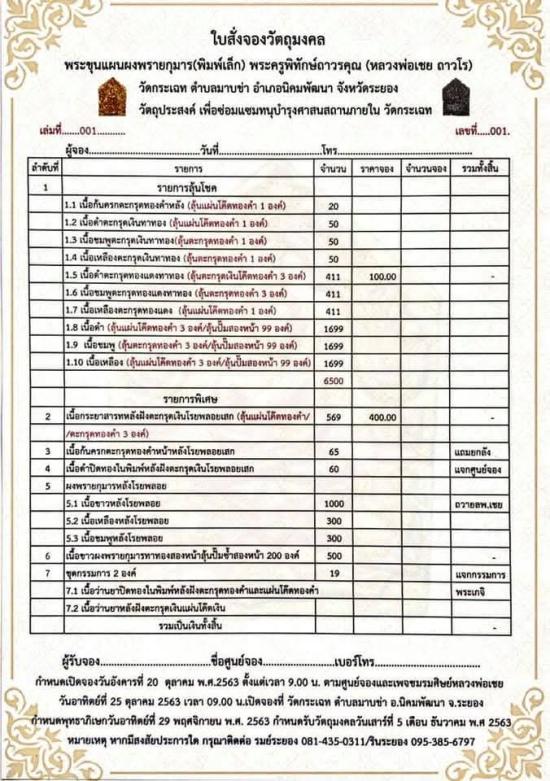 ใบสั่งจองวัตถุมงคล
พระขุนแผนผงพรายกุมาร(พิมพ์เล็ก) พระครูพิทักษ์ถาวรคุณ (หลวงพ่อเชย ถาวโร)
วัดกระเฉท ตำบลมาบข่า อำเภอนิคมพัฒนา จังหวัดระยอง
วัตถุประสงค์ เพื่อซ่อมแซมทนุบำรุงศาสนสถานภายใน วัดกระเฉท
เล่มที่.......001........... เลขที่.....001.
ผู้จอง..................................วันที่..................................โทร..................................
ลำดับที่ รายการ จำนวน ราคาจอง จำนวนจอง รวมทั้งสิ้น
1 รายการลุ้นโชค
1.1 เนื้อก้นครกตะกรุดทองคำหลัง (ลุ้นแผ่นโค๊ตทองคำ 1 องค์) 20
1.2 เนื้อดำตะกรุดเงินทาทอง (ลุ้นแผ่นโค๊ตทองคำ 1 องค์) 50
1.3 เนื้อชมพูตะกรุดเงินทาทอง(ลุ้นตะกรุดทองคำ 1 องค์) 50
1.4 เนื้อเหลืองตะกรุดเงินทาทอง (ลุ้นตะกรุดทองคำ 1 องค์) 50
1.5 เนื้อดำตะกรุดทองแดงทาทอง (ลุ้นตะกรุดเงินโค๊ตทองคำ 3 องค์) 411 100.00 -
1.6 เนื้อชมพูตะกรุดทองแดงทาทอง (ลุ้นตะกรุดทองคำ 3 องค์) 411
1.7 เนื้อเหลืองตะกรุดทองแดง (ลุ้นแผ่นโค๊ตทองคำ 1 องค์) 411
1.8 เนื้อดำ (ลุ้นแผ่นโค๊ตทองคำ 3 องค์/ลุ้นปั๊มสองหน้า 99 องค์) 1699
1.9 เนื้อชมพู (ลุ้นตะกรุดทองคำ 3 องค์/ลุ้นปั๊มสองหน้า 99 องค์) 1699
1.10 เนื้อเหลือง (ลุ้นแผ่นโค๊ตทองคำ 3 องค์/ลุ้นปั๊มสองหน้า 99 องค์) 1699
6500
รายการพิเศษ
2 เนื้อกระยาสารทหลังฝังตะกรุดเงินโรยพลอยเสก (ลุ้นแผ่นโค๊ตทองคำ/ 569 400.00 -
/ตะกรุดทองคำ 3 องค์)
3 เนื้อก้นครกตะกรุดทองคำหน้าหลังโรยพลอยเสก 65 แถมยกลัง
4 เนื้อดำปิดทองในพิมพ์หลังฝังตะกรุดเงินโรยพลอยเสก 60 แจกศูนย์จอง
5 ผงพรายกุมารหลังโรยพลอย
5.1 เนื้อขาวหลังโรยพลอย 1000 ถวายลพ.เชย
5.2 เนื้อเหลืองหลังโรยพลอย 300
5.3 เนื้อชมพูหลังโรยพลอย 300
6 เนื้อขาวผงพรายกุมารทาทองสองหน้าลุ้นปั๊มซ้ำสองหน้า 200 องค์ 500 -
7 ชุดกรรมการ 2 องค์ 19 แจกกรรมการ
7.1 เนื้อว่านยาปิดทองในพิมพ์หลังฝังตะกรุดทองคำและแผ่นโค๊ตทองคำ พระเกจิ
7.2 เนื้อว่านยาหลังฝังตะกรุดเงินแผ่นโค๊ตเงิน
รวมเป็นเงินทั้งสิ้น -
ผู้รับจอง..............................ชื่อศูนย์จอง....................เบอร์โทร..............................
กำหนดเปิดจองวันอังคารที่ 20 ตุลาคม พ.ศ.2563 ตั้งแต่เวลา 9.00 น. ตามศูนย์จองและเพจชมรมศิษย์หลวงพ่อเชย
วันอาทิตย์ที่ 25 ตุลาคม 2563 เวลา 09.00 น.เปิดจองที่ วัดกระเฉท ตำบลมาบข่า อ.นิคมพัฒนา จ.ระยอง
กำหนดพุทธาภิเษกวันอาทิตย์ที่ 29 พฤศจิกายน พ.ศ. 2563 กำหนดรับวัตถุมงคลวันเสาร์ที่ 5 เดือน ธันวาคม พ.ศ 2563
หมายเหตุ หากมีสงสัยประการใด กรุณาติดต่อ รมย์ระยอง 081-435-0311/รินระยอง 095-385-6797